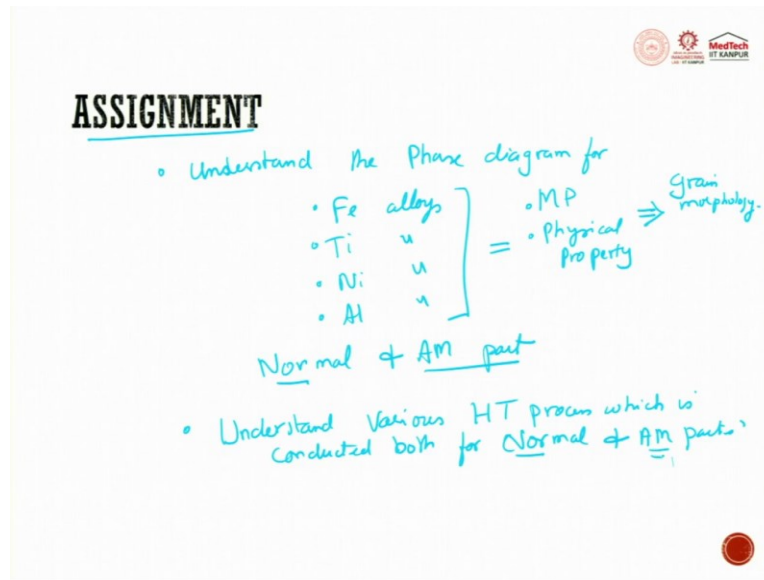 MedTech
IT KANPUR
ASSIGNMENT
• Understand the Phase diagram for
• Fe alloys
• Ti "
• Ni "
• Al "
=
• MP
• Physical Property
⇒ grain morphology.
Normal & AM part
• Understand Various HT process which is
conducted both for Normal & AM parts